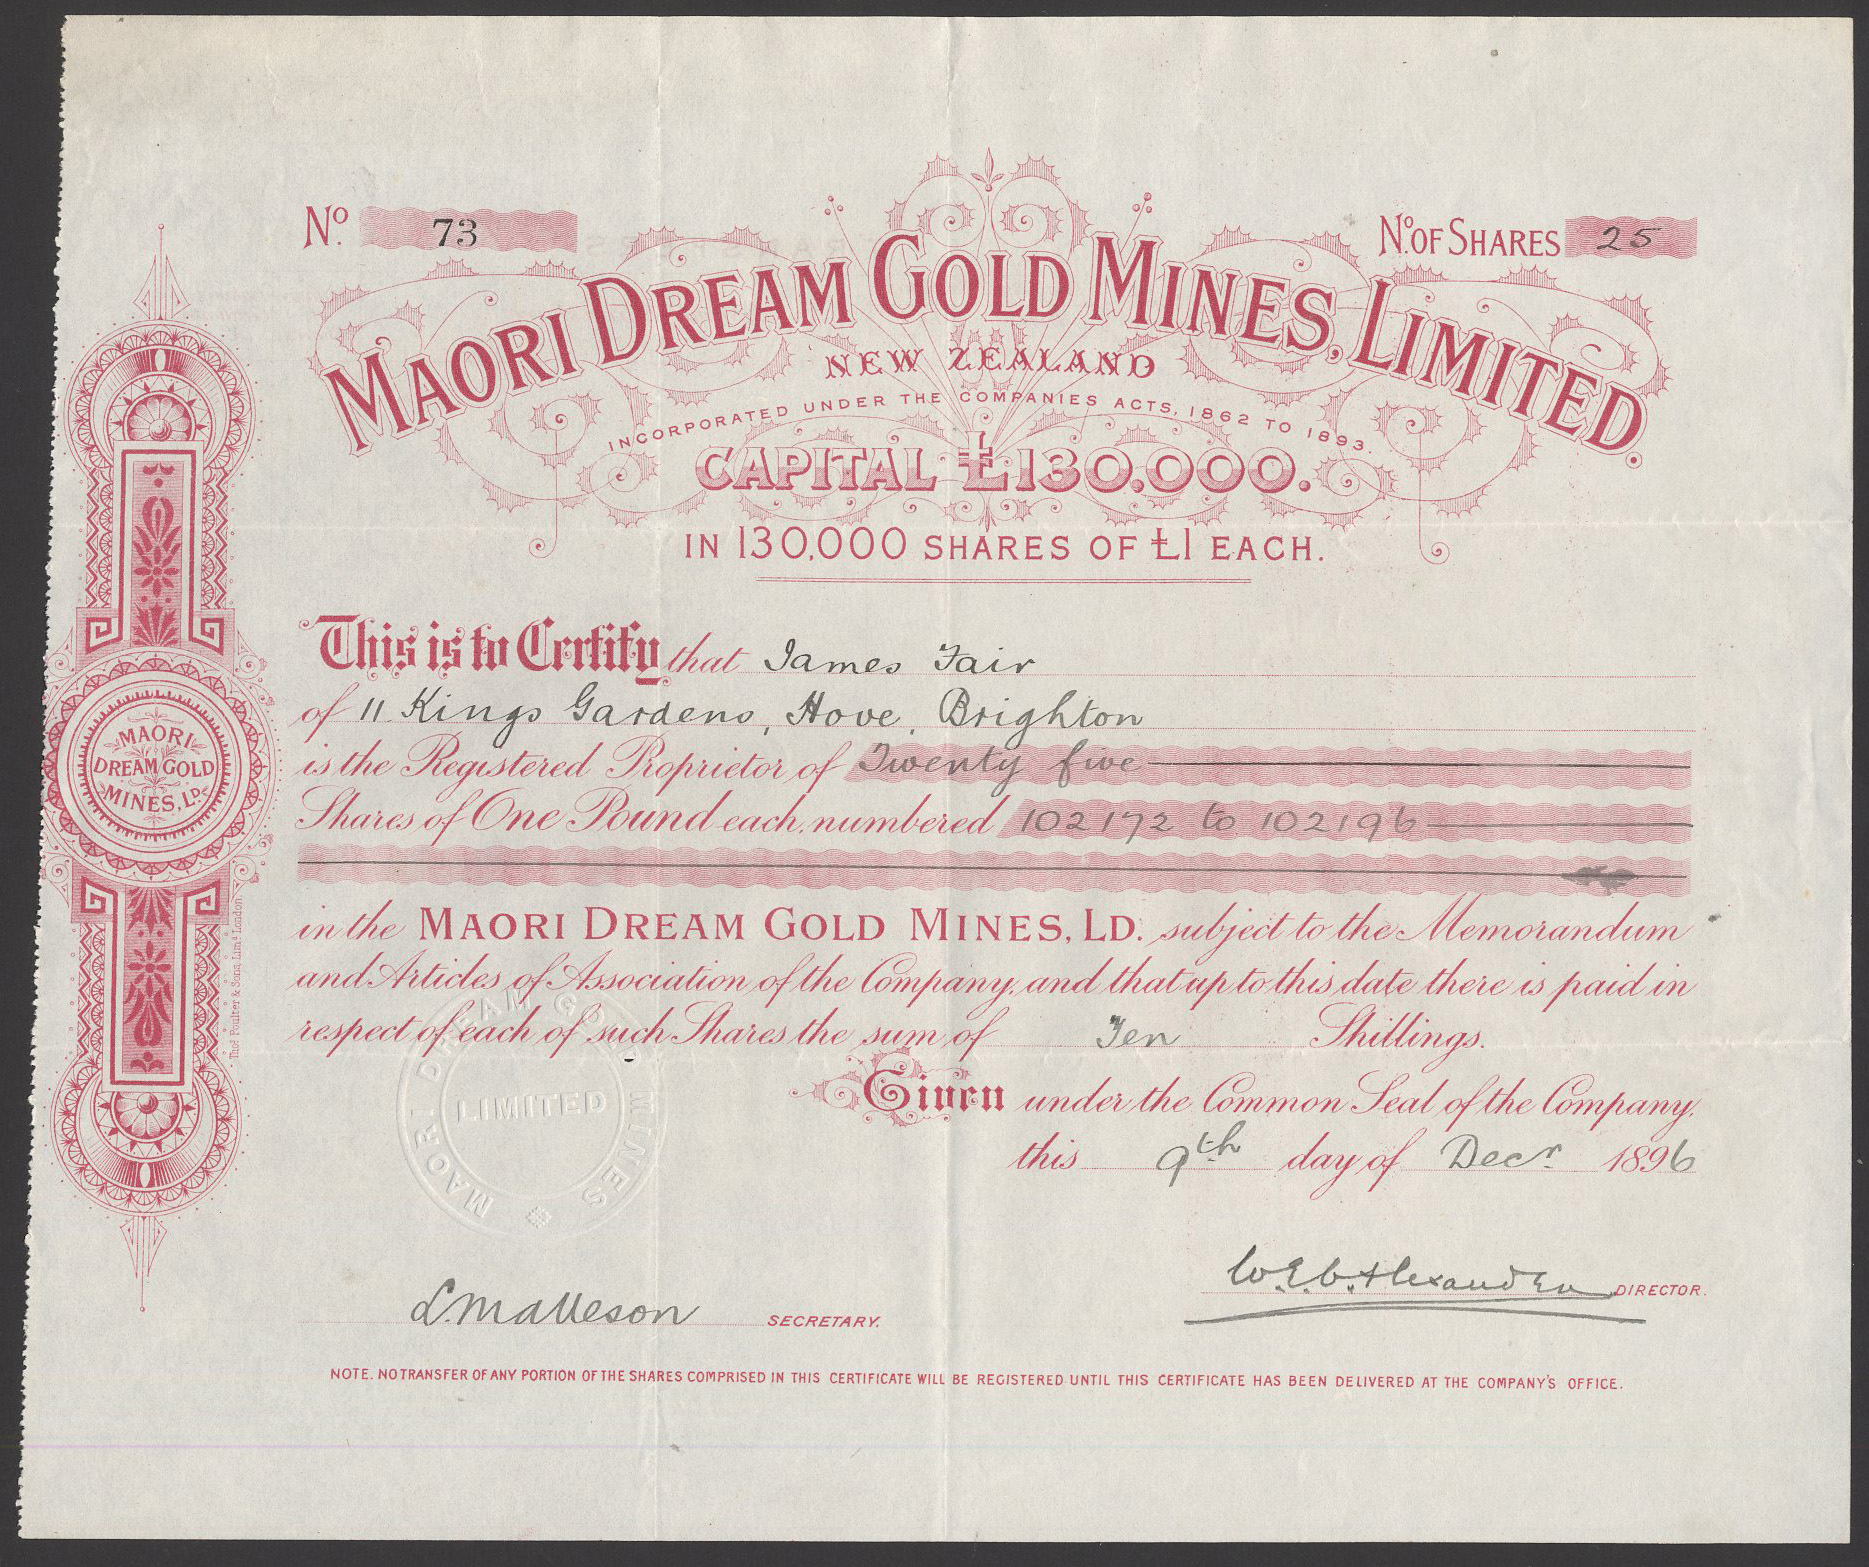 No. 73
No. OF SHARES 25
MAORI DREAM GOLD MINES, LIMITED.
NEW ZEALAND
INCORPORATED UNDER THE COMPANIES ACTS, 1862 TO 1893.
CAPITAL £130,000.
IN 130,000 SHARES OF £1 EACH.
This is to Certify that James Fair
of 11 Kings Gardens, Hove, Brighton
is the Registered Proprietor of Twenty five
Shares of One Pound each, numbered 102172 to 102196
in the MAORI DREAM GOLD MINES, LD. subject to the Memorandum
and Articles of Association of the Company, and that up to this date there is paid in
respect of each of such Shares the sum of Ten Shillings.
Given under the Common Seal of the Company,
this 9th day of Decr. 1896
W.E.C. Alexander DIRECTOR.
L. Malleson SECRETARY.
NOTE. NO TRANSFER OF ANY PORTION OF THE SHARES COMPRISED IN THIS CERTIFICATE WILL BE REGISTERED UNTIL THIS CERTIFICATE HAS BEEN DELIVERED AT THE COMPANY'S OFFICE.
MAORI
DREAM GOLD
MINES, LD.
Thos. Poulter & Sons, Limd. London
MAORI DREAM GOLD MINES
LIMITED